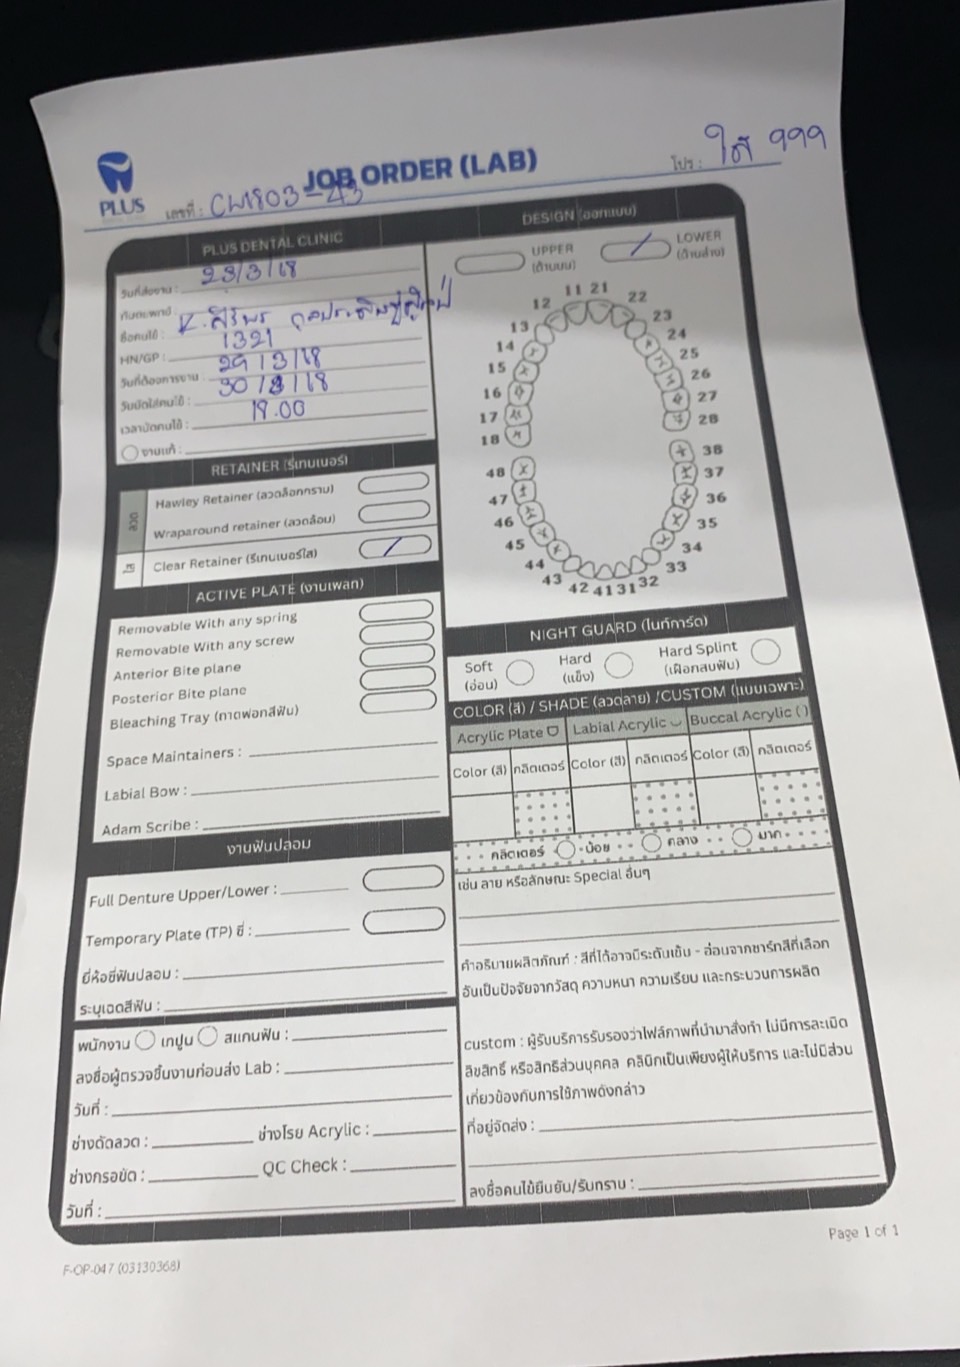 PLUS
JOB ORDER (LAB)
เลขที่ : CW1803-43
โปร : ใส 999
PLUS DENTAL CLINIC
วันที่ส่งงาน : 23/3/68
ทันตแพทย์ :
ชื่อคนไข้ : K. สิริพร
HN/GP : 1321
วันที่ต้องการงาน : 29/3/68
วันนัดใส่คนไข้ : 30/3/68
เวลานัดคนไข้ : 19.00
งานแก้ :
RETAINER (รีเทนเนอร์)
ลวด
Hawley Retainer (ลวดล็อกกราม)
Wraparound retainer (ลวดล้อม)
ใส
Clear Retainer (รีเทนเนอร์ใส) /
ACTIVE PLATE (งานเพลท)
Removable With any spring
Removable With any screw
Anterior Bite plane
Posterior Bite plane
Bleaching Tray (ถาดฟอกสีฟัน)
Space Maintainers :
Labial Bow :
Adam Scribe :
งานฟันปลอม
Full Denture Upper/Lower :
Temporary Plate (TP) ซี่ :
ยี่ห้อซี่ฟันปลอม :
ระบุเฉดสีฟัน :
พนักงาน เทปูน สแกนฟัน :
ลงชื่อผู้ตรวจชิ้นงานก่อนส่ง Lab :
วันที่ :
ช่างดัดลวด : ช่างโรย Acrylic :
ช่างกรอขัด : QC Check :
วันที่ :
DESIGN (ออกแบบ)
UPPER (ด้านบน)
/ LOWER (ด้านล่าง)
11 21
12 22
13 23
14 24
15 25
16 26
17 27
18 28
48 38
47 37
46 36
45 35
44 34
43 33
42 41 31 32
NIGHT GUARD (ไนท์การ์ด)
Soft (อ่อน)
Hard (แข็ง)
Hard Splint (เฝือกสบฟัน)
COLOR (สี) / SHADE (ลวดลาย) /CUSTOM (แบบเฉพาะ)
Acrylic Plate Labial Acrylic Buccal Acrylic ( )
Color (สี) กลิตเตอร์ Color (สี) กลิตเตอร์ Color (สี) กลิตเตอร์
กลิตเตอร์ น้อย กลาง มาก
เช่น ลาย หรือลักษณะ Special อื่นๆ
คำอธิบายผลิตภัณฑ์ : สีที่ได้อาจมีระดับเข้ม - อ่อนจากชาร์ทสีที่เลือก
อันเป็นปัจจัยจากวัสดุ ความหนา ความเรียบ และกระบวนการผลิต
custom : ผู้รับบริการรับรองว่าไฟล์ภาพที่นำมาสั่งทำ ไม่มีการละเมิด
ลิขสิทธิ์ หรือสิทธิส่วนบุคคล คลินิกเป็นเพียงผู้ให้บริการ และไม่มีส่วน
เกี่ยวข้องกับการใช้ภาพดังกล่าว
ที่อยู่จัดส่ง :
ลงชื่อคนไข้ยืนยัน/รับทราบ :
Page 1 of 1
F-OP-047 (03130368)